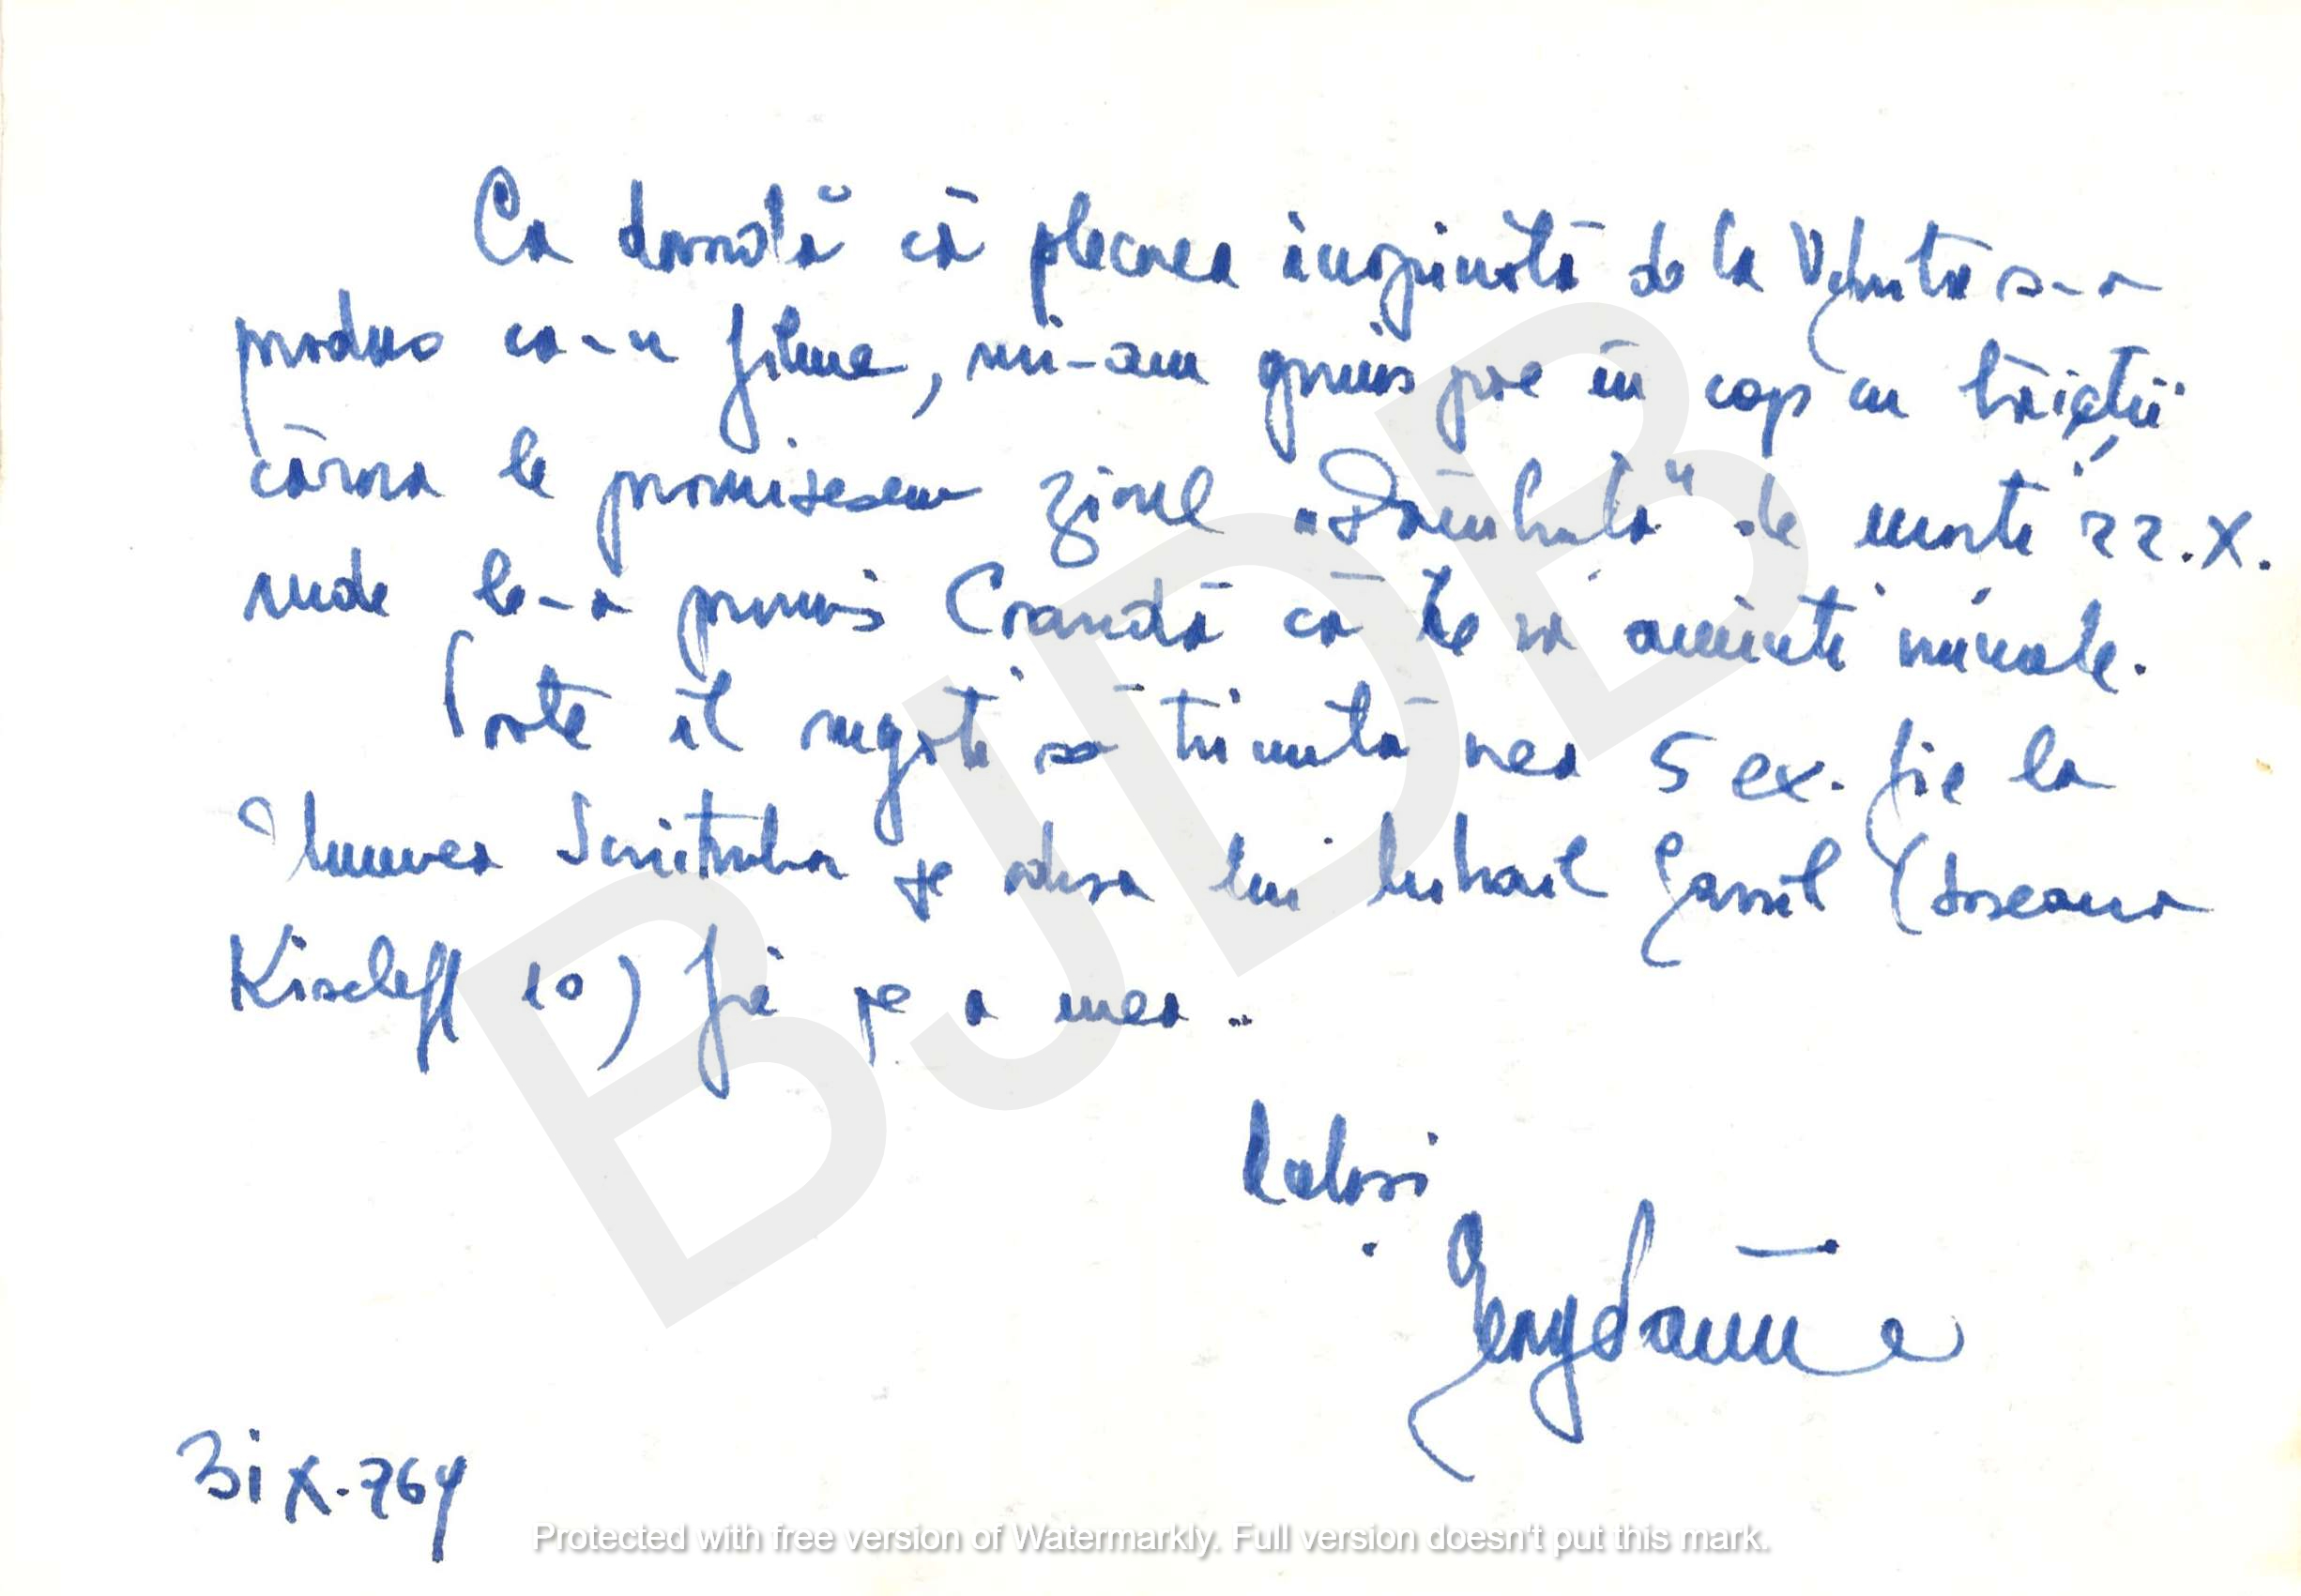 Ca dovadă că plecarea inopinată de la s-a
produs ca-n filme, mi-am pus în cap cu băieții
cărora le promisesem ziarul „Dâmbovița" de marți 22.X.
unde le-a promis Crandă că le va aminti numele.
Poate îl rugați să trimită vreo 5 ex. fie la
Uniunea Scriitorilor pe adresa lui Mihail Gavril (Șoseaua
Kiseleff 10) fie pe a mea..
Salosi
31 X. 764
BJDB
Protected with free version of Watermarkly. Full version doesn't put this mark.